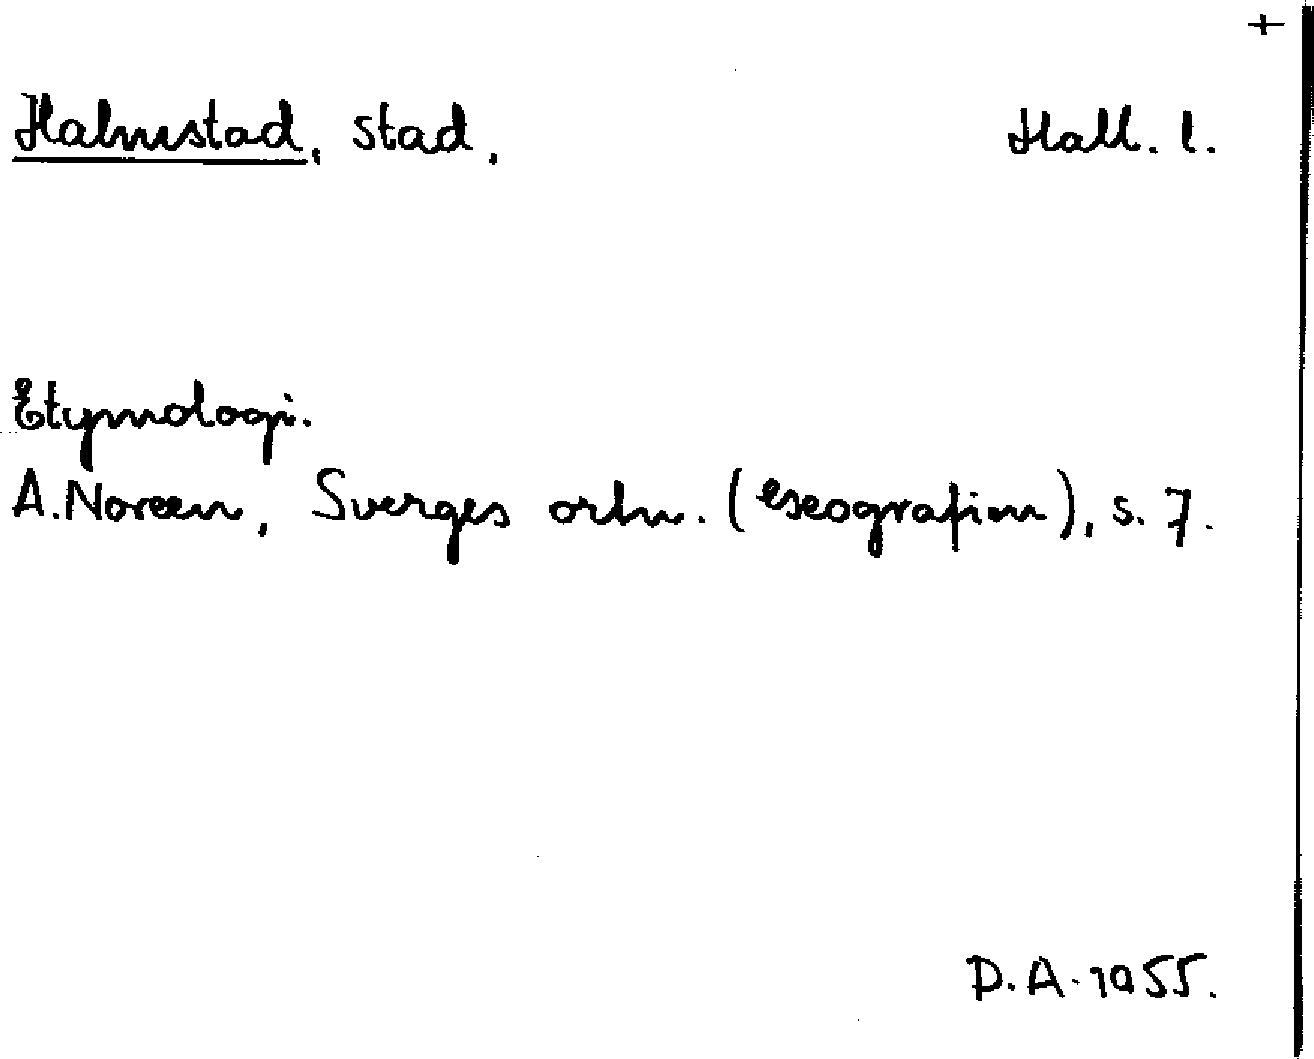 +
Halmstad, stad. Hall. l.
Etymologi.
A. Noreen, Sverges ortn. (eseografien), s. 7.
D.A. 1955.